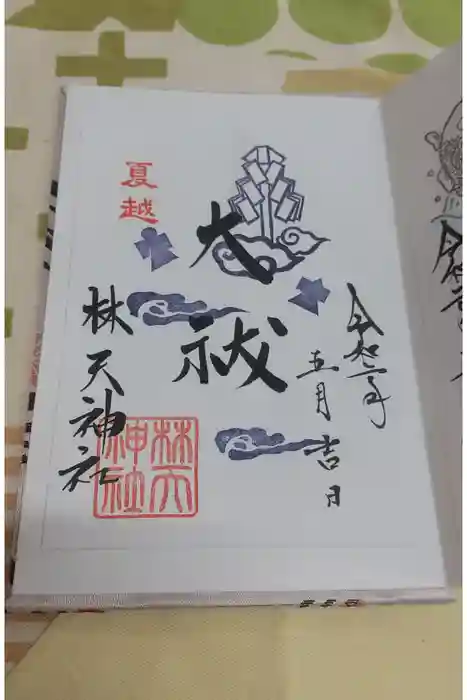 令和二年
五月吉日
夏越
大祓
林天神社
林天
神社